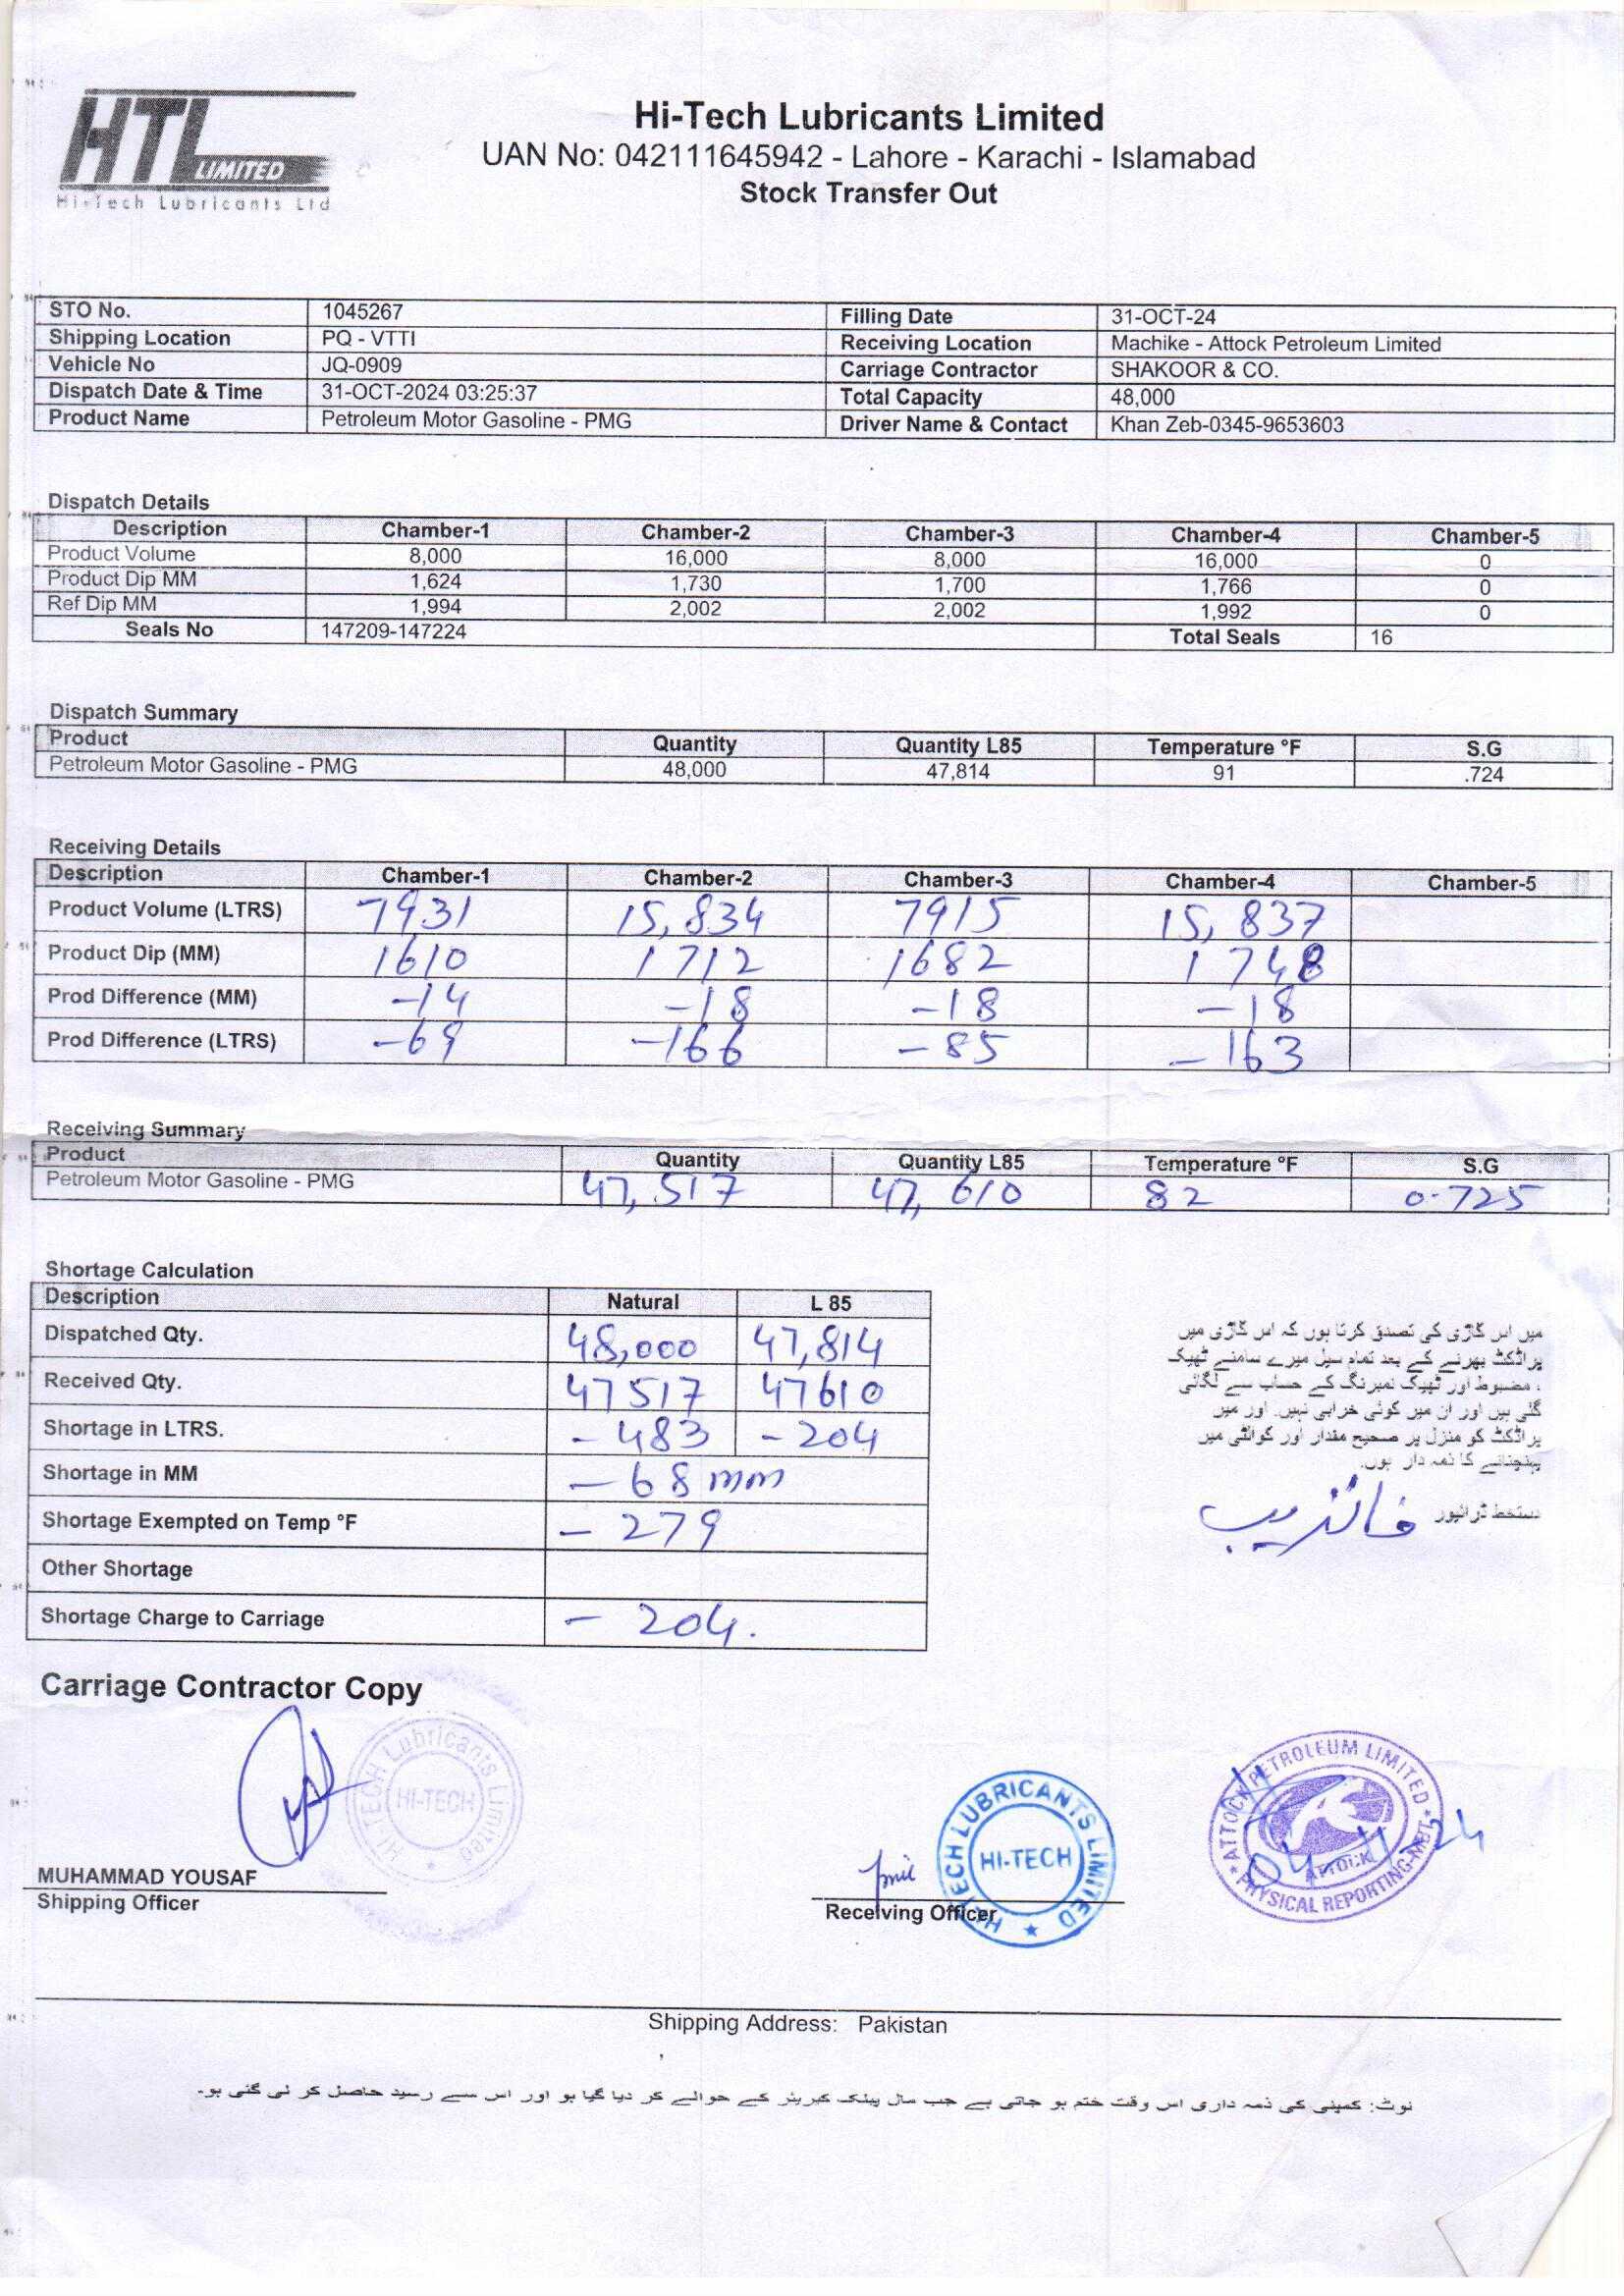 HTL
LIMITED
Hi-Tech Lubricants Ltd
Hi-Tech Lubricants Limited
UAN No: 042111645942 - Lahore - Karachi - Islamabad
Stock Transfer Out
STO No. 1045267 Filling Date 31-OCT-24
Shipping Location PQ - VTTI Receiving Location Machike - Attock Petroleum Limited
Vehicle No JQ-0909 Carriage Contractor SHAKOOR & CO.
Dispatch Date & Time 31-OCT-2024 03:25:37 Total Capacity 48,000
Product Name Petroleum Motor Gasoline - PMG Driver Name & Contact Khan Zeb-0345-9653603
Dispatch Details
Description Chamber-1 Chamber-2 Chamber-3 Chamber-4 Chamber-5
Product Volume 8,000 16,000 8,000 16,000 0
Product Dip MM 1,624 1,730 1,700 1,766 0
Ref Dip MM 1,994 2,002 2,002 1,992 0
Seals No 147209-147224 Total Seals 16
Dispatch Summary
Product Quantity Quantity L85 Temperature °F S.G
Petroleum Motor Gasoline - PMG 48,000 47,814 91 .724
Receiving Details
Description Chamber-1 Chamber-2 Chamber-3 Chamber-4 Chamber-5
Product Volume (LTRS) 7931 15,834 7915 15,837
Product Dip (MM) 1610 1712 1682 1748
Prod Difference (MM) -14 -18 -18 -18
Prod Difference (LTRS) -69 -166 -85 -163
Receiving Summary
Product Quantity Quantity L85 Temperature °F S.G
Petroleum Motor Gasoline - PMG 47,517 47,610 82 0.725
Shortage Calculation
Description Natural L 85
Dispatched Qty. 48,000 47,814
Received Qty. 47517 47610
Shortage in LTRS. -483 -204
Shortage in MM -68 mm
Shortage Exempted on Temp °F -279
Other Shortage
Shortage Charge to Carriage -204.
میں اس گاڑی کی تصدق کرتا ہوں کہ اس گاڑی میں
پراڈکٹ بھرنے کے بعد تمام سیل میرے سامنے ٹھیک
، مضبوط اور ٹھیک نمبرنگ کے حساب سے لگائی
گئی ہیں اور ان میں کوئی خرابی نہیں۔ اور میں
پراڈکٹ کو منزل پر صحیح مقدار اور کوالٹی میں
پہنچانے کا ذمہ دار ہوں۔
دستخط ڈرائیور
Carriage Contractor Copy
HI-TECH Lubricants Limited
HI-TECH
MUHAMMAD YOUSAF
Shipping Officer
HI-TECH LUBRICANTS LIMITED
HI-TECH
Receiving Officer
ATTOCK PETROLEUM LIMITED
ATTOCK
PHYSICAL REPORTING-MBT
04-11-24
Shipping Address: Pakistan
نوٹ: کمپنی کی ذمہ داری اس وقت ختم ہو جاتی ہے جب مال بینک کیریئر کے حوالے کر دیا گیا ہو اور اس سے رسید حاصل کر لی گئی ہو۔